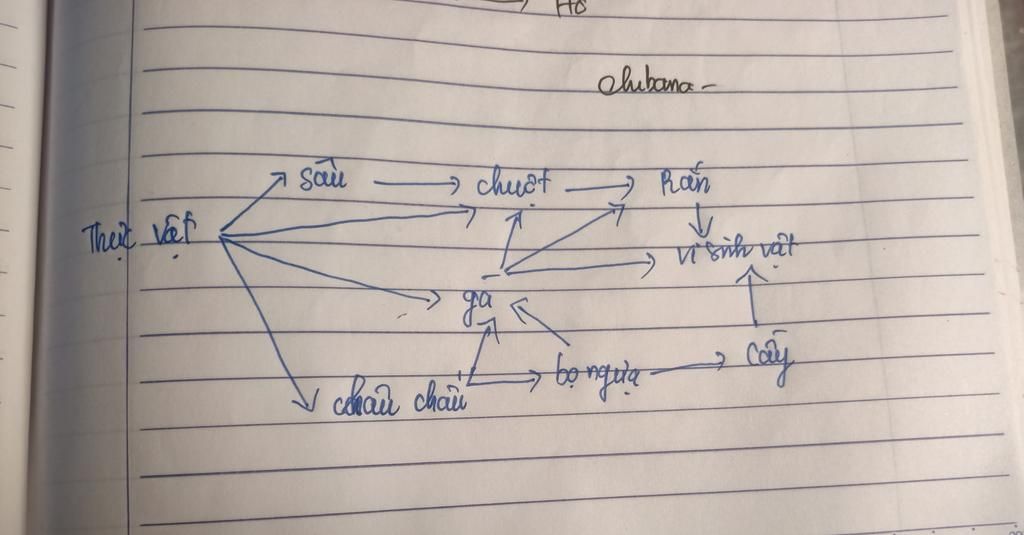 Hổ
Chibana -
sâu → chuột → Rắn
Thực vật
vi sinh vật
gà
cầy
bọ ngựa
châu chấu